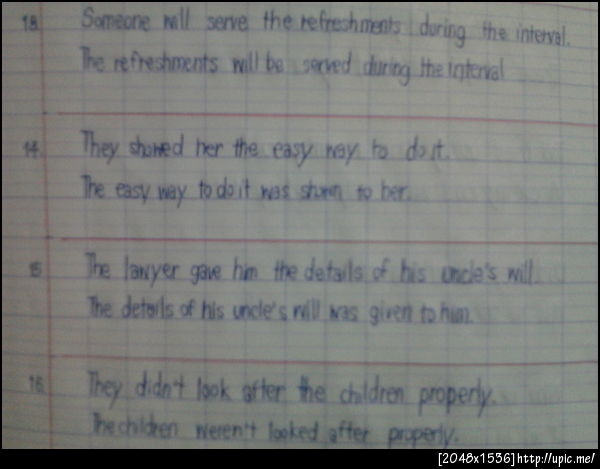 13. Someone will serve the refreshments during the interval.
The refreshments will be served during the interval
14. They showed her the easy way to do it.
The easy way to do it was shown to her.
15 The lawyer gave him the details of his uncle's will.
The details of his uncle's will was given to him.
16. They didn't look after the children properly.
The children weren't looked after properly.
[2048x1536]http://upic.me/